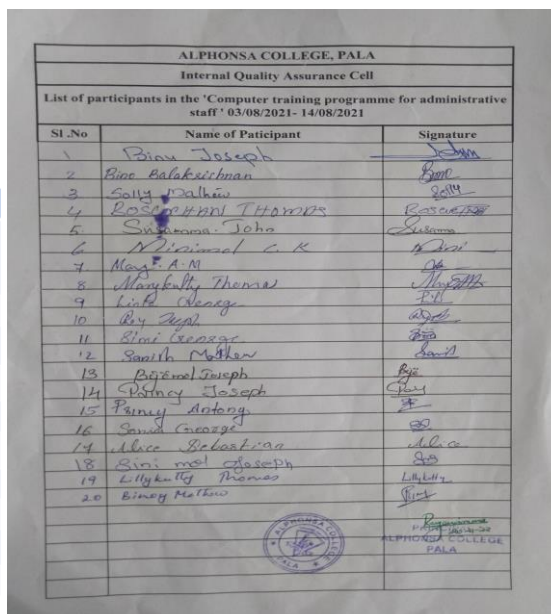 ALPHONSA COLLEGE, PALA
Internal Quality Assurance Cell
List of participants in the 'Computer training programme for administrative
staff ' 03/08/2021- 14/08/2021
Sl .No Name of Paticipant Signature
1 Binu Joseph
2 Bino Balakrishnan Bino
3 Solly Mathew Solly
4 ROSAMMA THOMAS
5. Susamma John Susamma
6 Minimol C. K Mini
7 Mary A. M
8 Marykutty Thomas
9 George
10 Roy
11 Simi George
12 Sanish Mathew
13 Bijimol Joseph Biji
14 Princy Joseph
15 Princy Antony
16 George
17 Alice Sebastian Alice
18 Sini mol Joseph
19 Lillykutty Thomas Lillykutty
20 Binoy Mathew
ALPHONSA COLLEGE
PALA
ALPHONSA COLLEGE
PALA